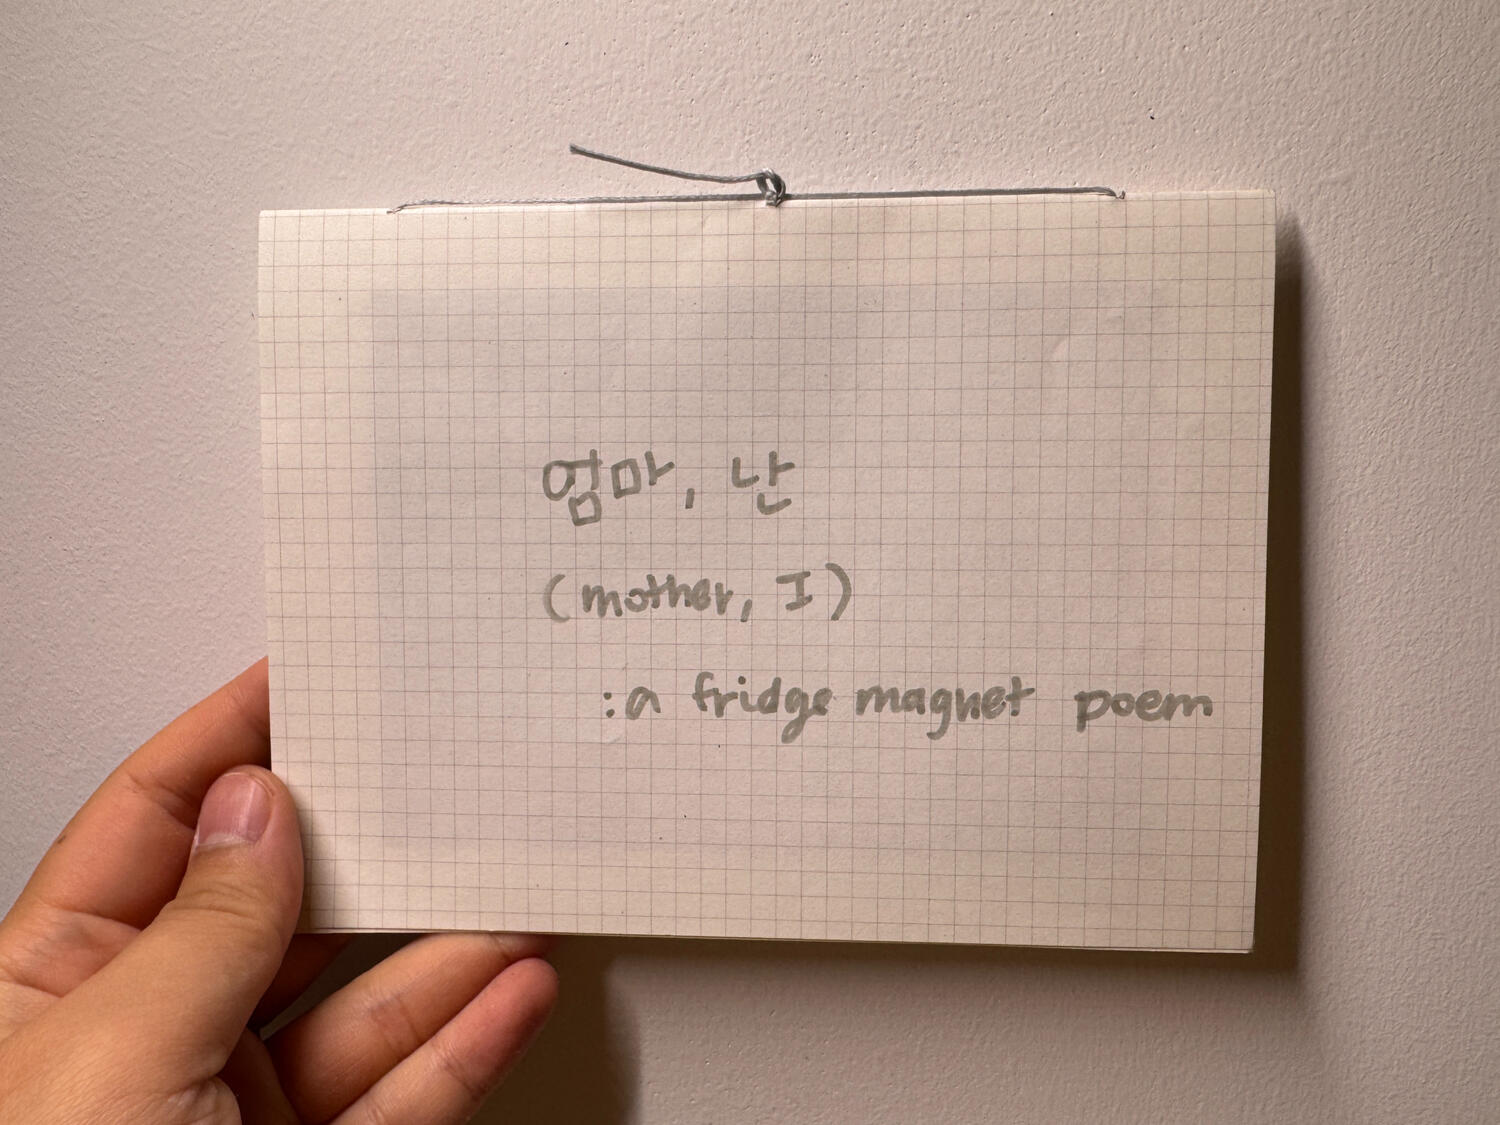 엄마, 난
(mother, I)
:a fridge magnet poem